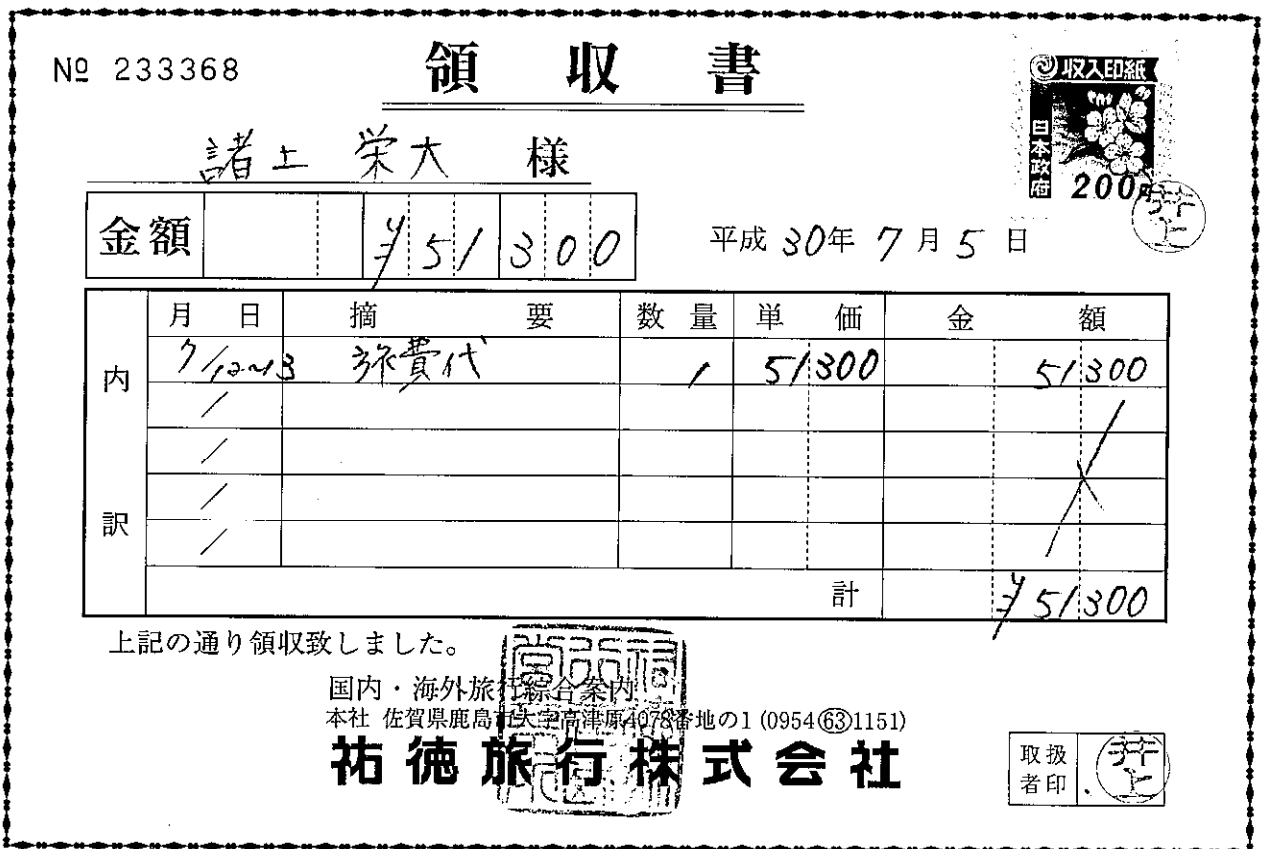 № 233368
領収書
収入印紙
日本政府
200円
井上
諸上 栄大 様
金額 ¥51300
平成30年7月5日
内訳
月日 摘要 数量 単価 金額
7/12~13 旅費代 1 51300 51300
/
/
/
/
計 ¥51300
上記の通り領収致しました。
国内・海外旅行綜合案内
本社 佐賀県鹿島市大字高津原4078番地の1 (0954㊿1151)
祐徳旅行株式会社
取扱者印
井上